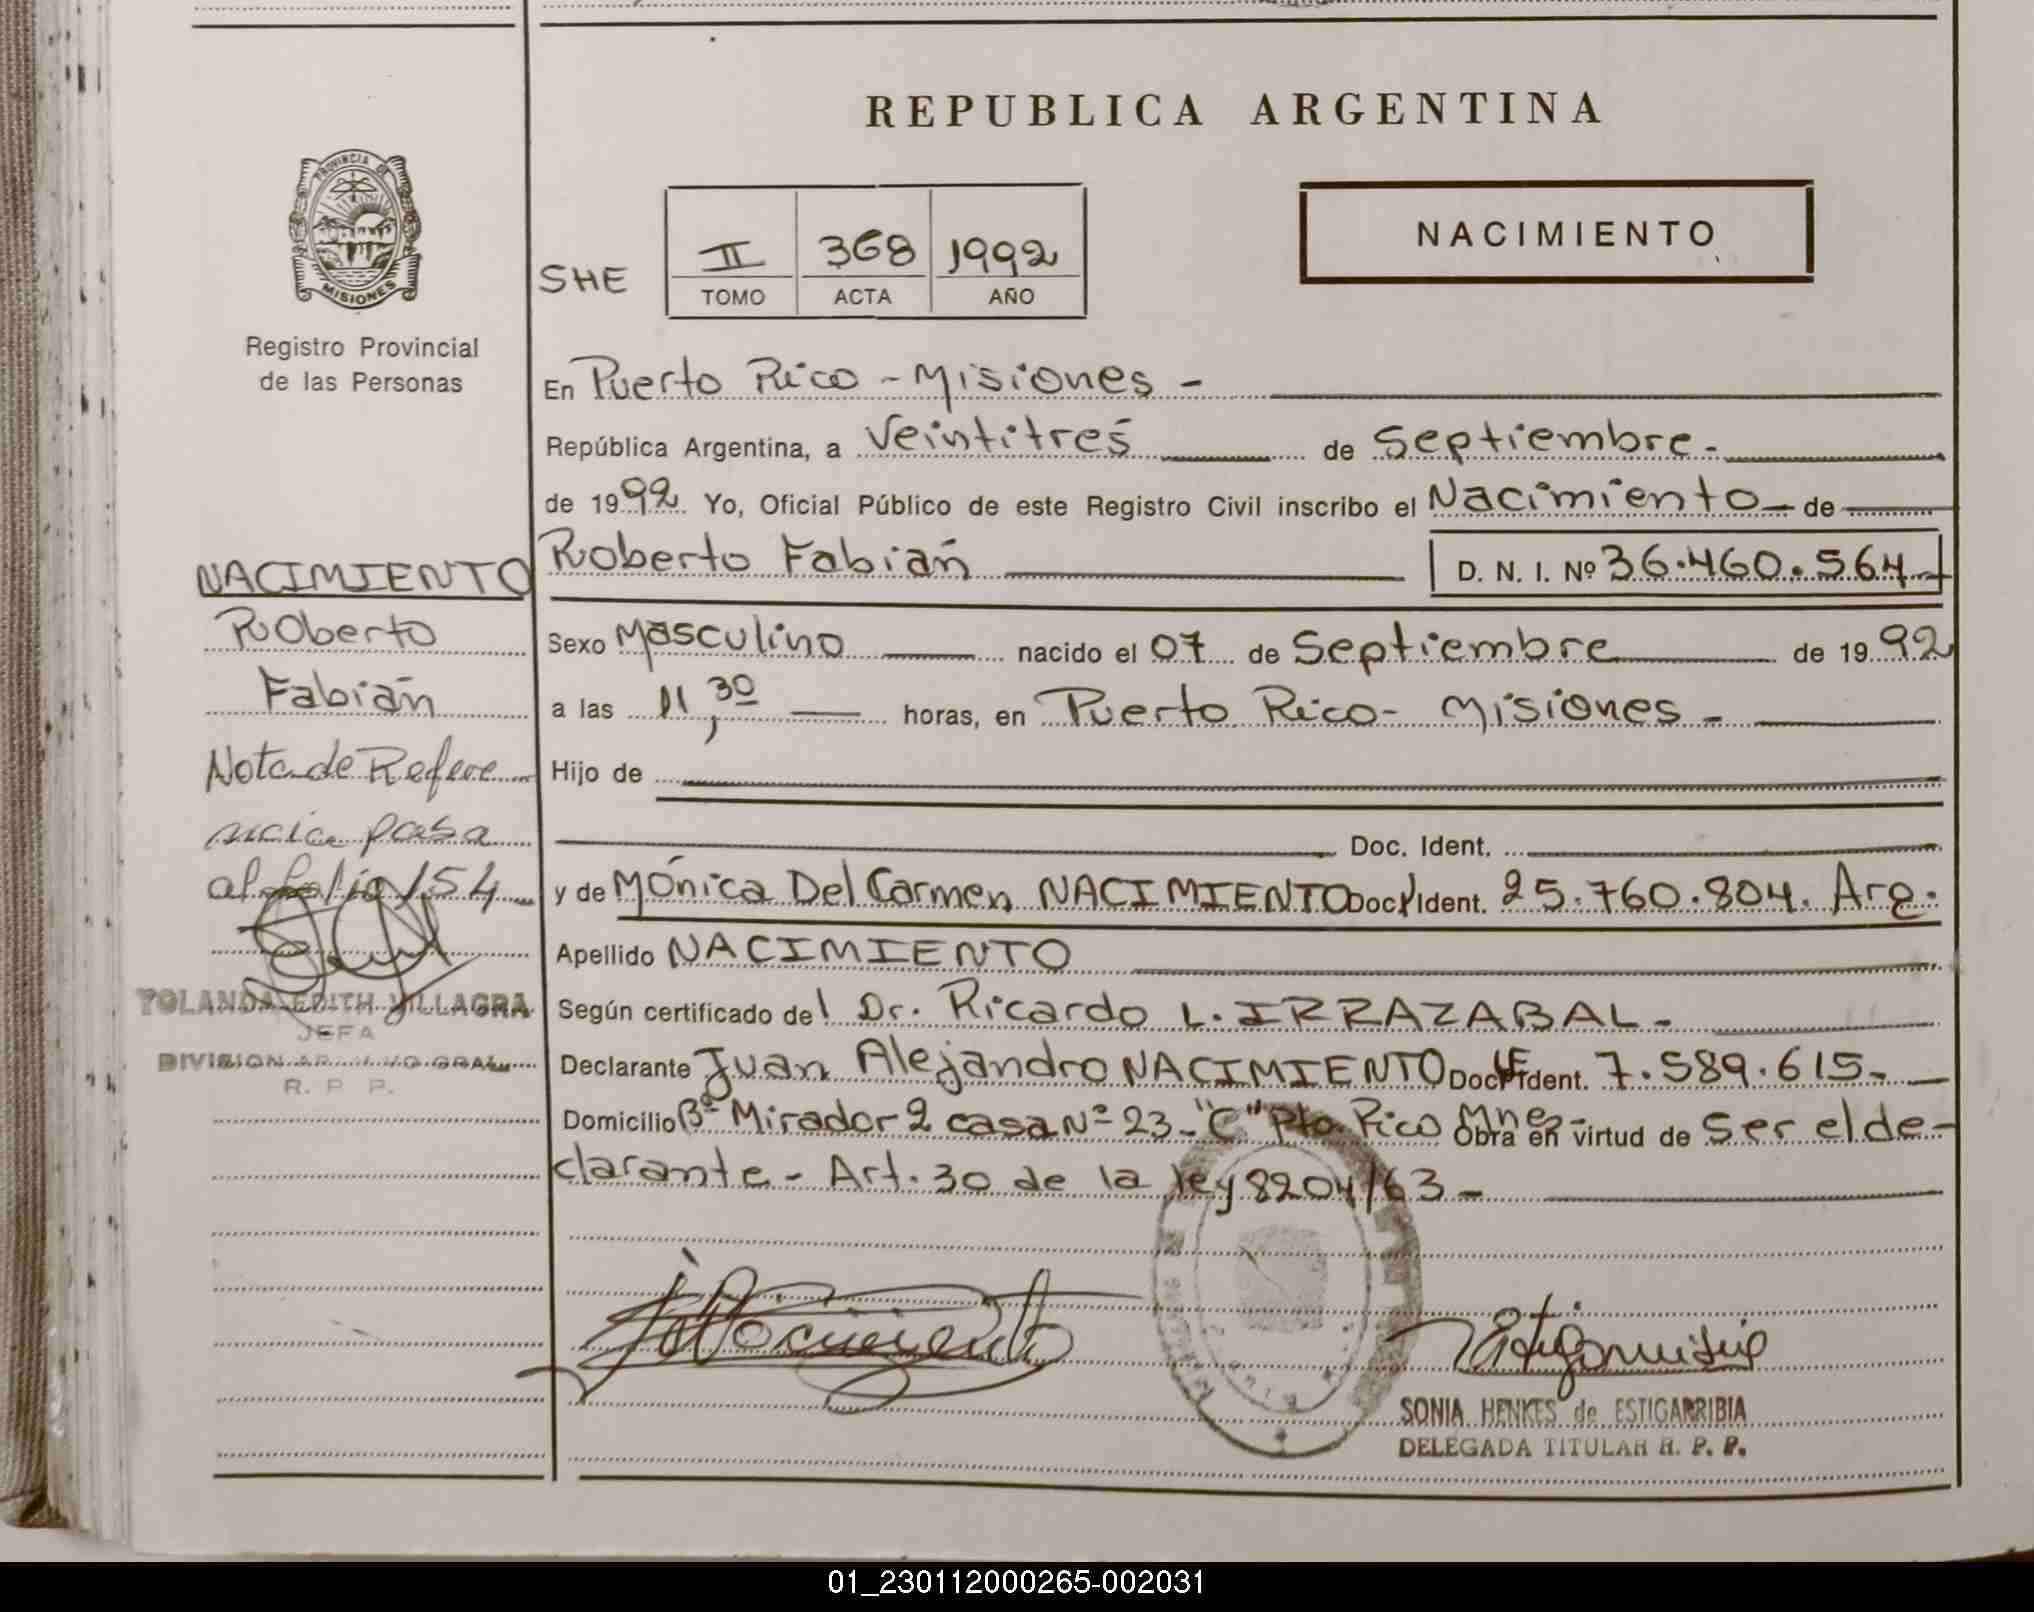 REPUBLICA ARGENTINA
PROVINCIA DE
MISIONES
Registro Provincial
de las Personas
NACIMIENTO
SHE II 368 1992
TOMO ACTA AÑO
En Puerto Rico - Misiones -
República Argentina, a Veintitrés de Septiembre.
de 1992 Yo, Oficial Público de este Registro Civil inscribo el Nacimiento de
Roberto Fabián D. N. I. Nº 36.460.564
Sexo Masculino nacido el 07 de Septiembre de 1992
a las 11,30 horas, en Puerto Rico - Misiones -
Hijo de
Doc. Ident.
y de Mónica Del Carmen NACIMIENTO Doc. Ident. 25.760.804. Arg.
Apellido NACIMIENTO
Según certificado del Dr. Ricardo L. IRRAZABAL -
Declarante Juan Alejandro NACIMIENTO Doc. Ident. 7.589.615-
Domicilio Bº Mirador 2 casa Nº 23-"C" Pto Rico Mnes- Obra en virtud de Ser el de-
clarante - Art. 30 de la ley 8204/63 -
NACIMIENTO
Roberto
Fabián
Nota de Refere
ncia pasa
al folio 154
YOLANDA EDITH VILLAGRA
JEFA
DIVISION ARCHIVO GRAL
R. P. P.
SONIA HENKES de ESTIGARRIBIA
DELEGADA TITULAR R. P. P.
01_230112000265-002031